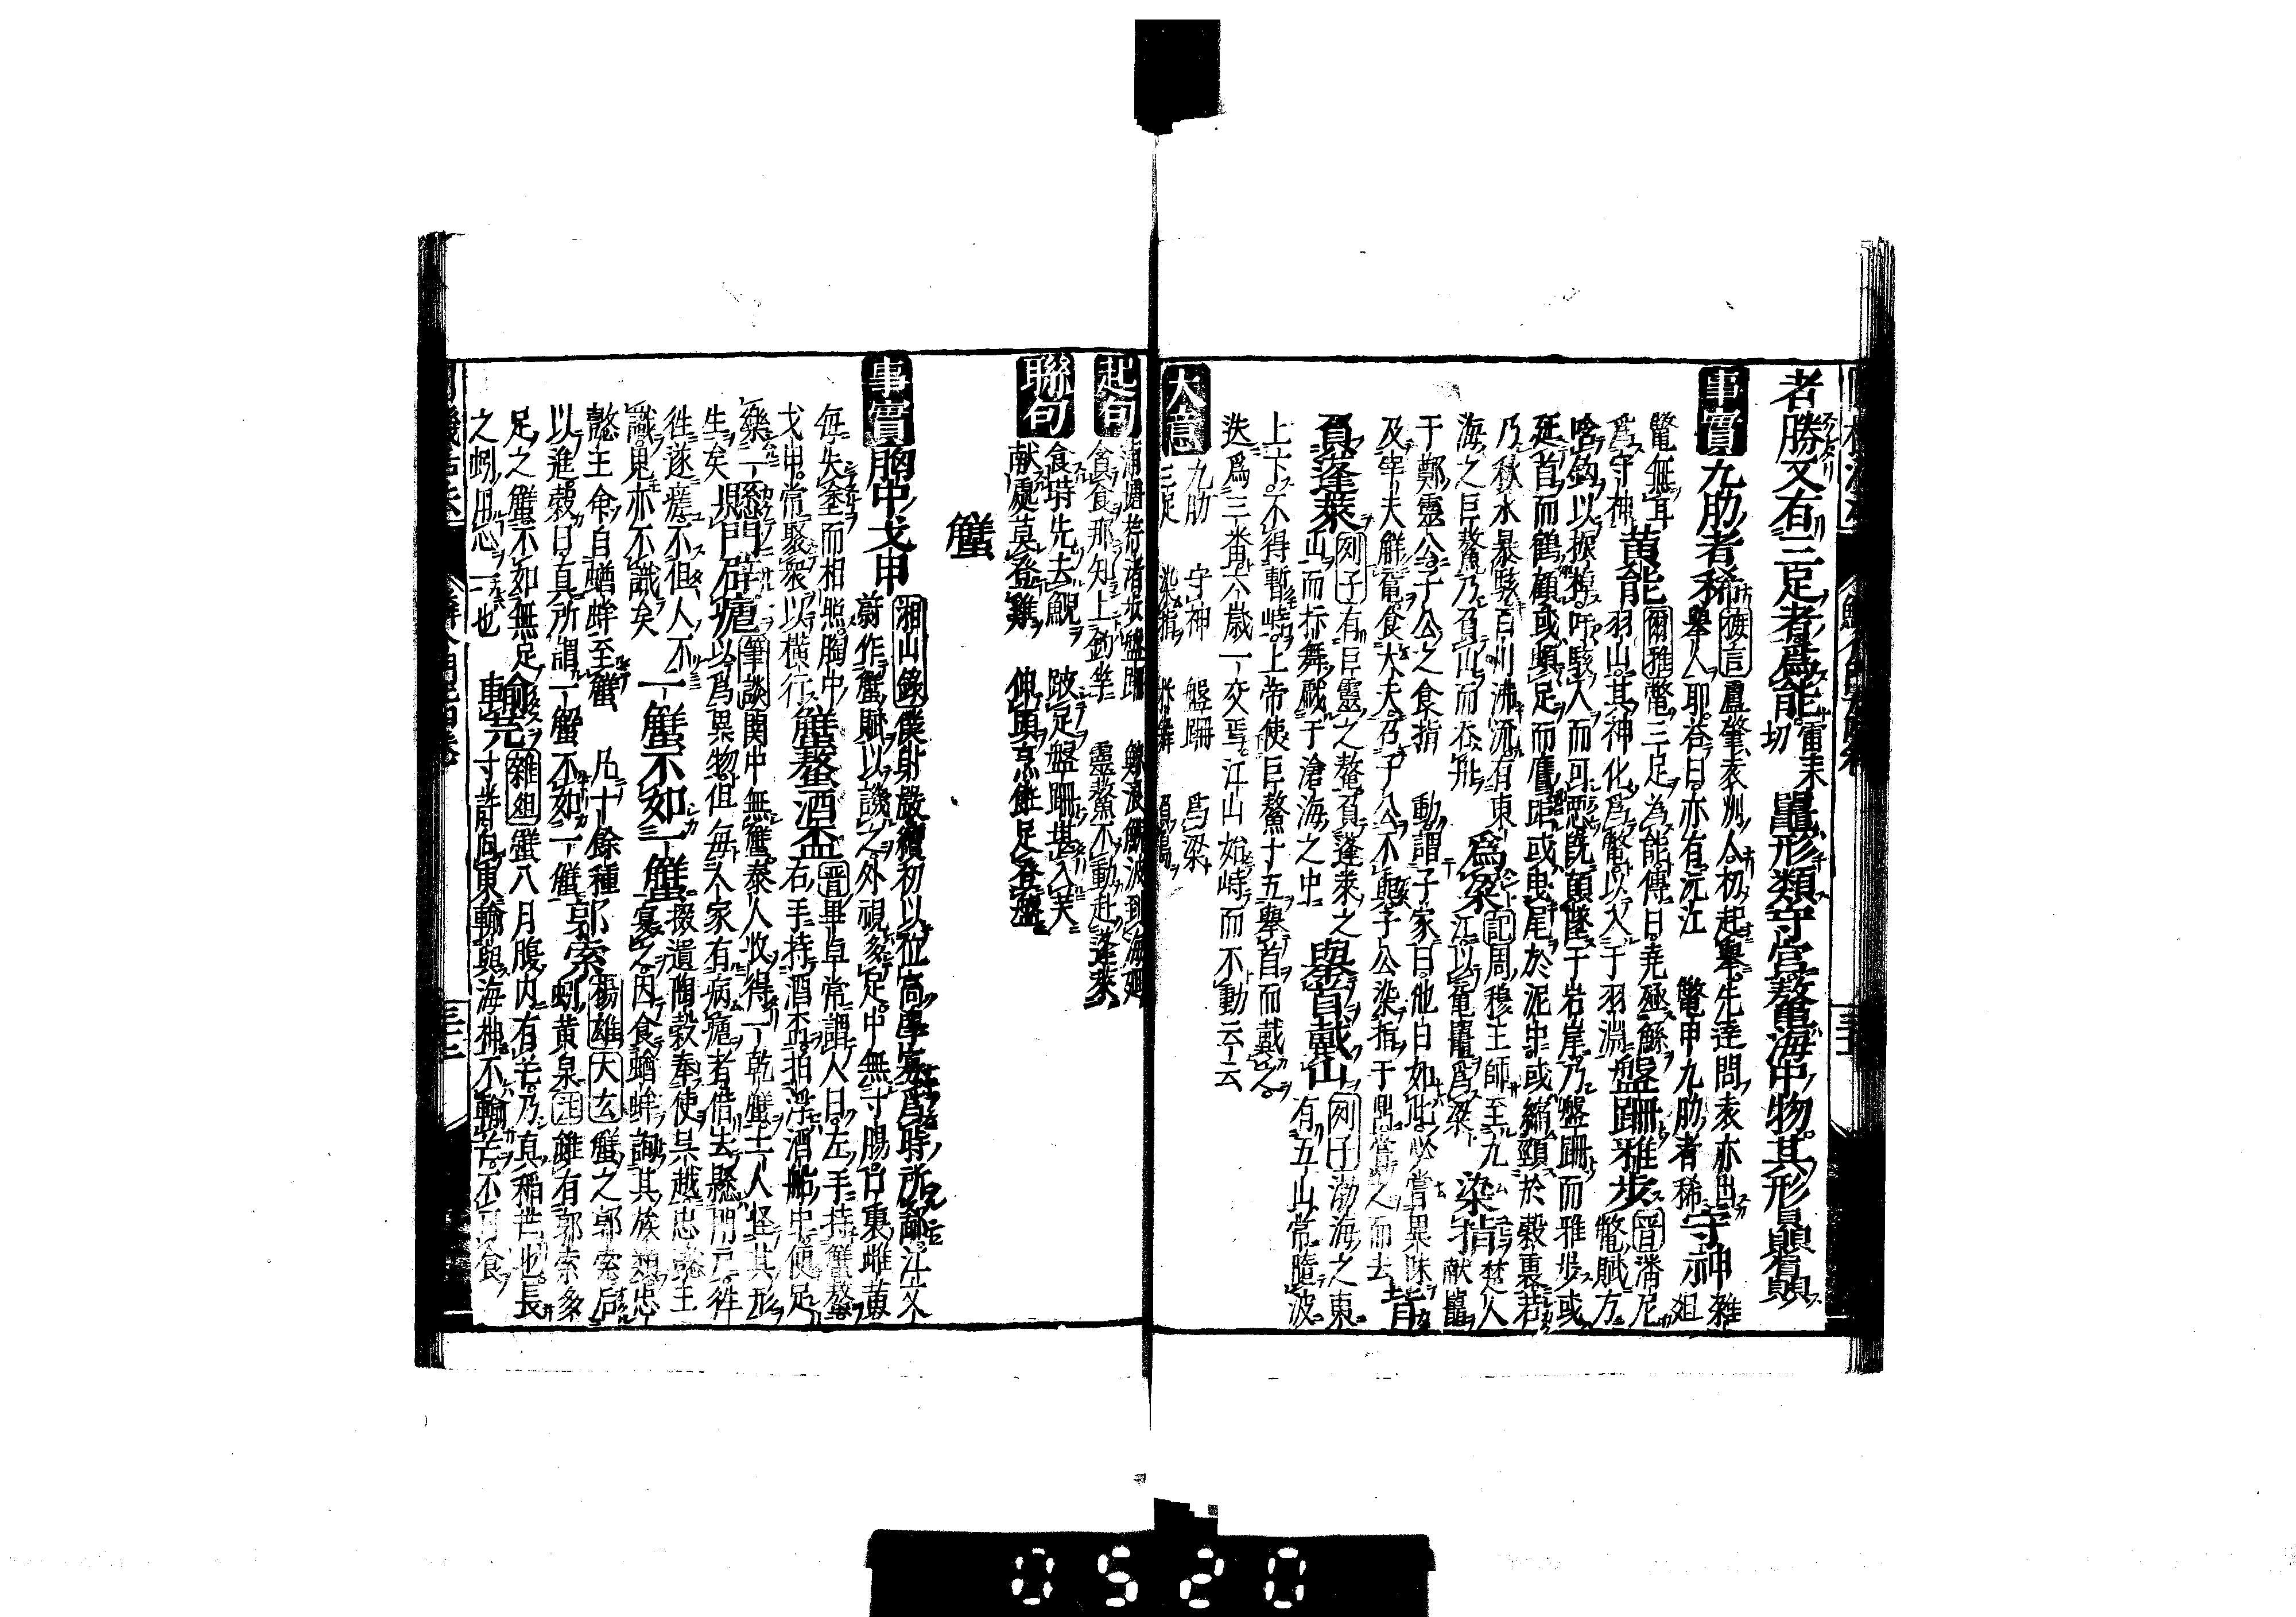 者勝又有三足者爲能雷来切 鼉形類守宮鼇海中物其形贔屭
事實 九肋者稀 摭言 盧肇袁州人初起舉先達問袁亦出
舉人耶荅曰亦有沅江 鼈甲九肋者稀 守神 雜俎
鼈無耳爲守神 黄能 爾雅 鼈三足為能傳曰堯殛鯀
羽山其神化爲鼈以入于羽淵 盤跚雅步 晋潘尼鼈賦方
啥鈎以振掉吁駭人而可惡既顛墜于岩岸乃盤跚而雅步或
延首而鶴顧或頓足而鷹距或曳尾於泥中或縮頸於殼裏若
乃秋水暴駭百川沸流有東海之巨鼇乃負山而吞舟
爲梁 記 周穆王師至九江以黿鼉爲梁 染指 楚人献黿
于鄭靈公子公之食指動謂子家曰他日如此必嘗異味
及宰夫觧黿食大夫召子公不與子公染指于鼎嘗之而去
背負蓬萊 列子 有巨靈之鼇負蓬萊之山而抃舞戲于滄海之中
舉首戴山 列子 渤海之東有五山常隨波
上下不得暫峙上帝使巨鼇十五舉首而戴之
迭爲三番六萬歲一交焉江山始峙而不動云云
大意 九肋 守神 盤跚 爲梁
三足 染指
起句
貪食那知上釣竿 靈鼇不動赴蓬萊
聯句 食時先去鯢 跛足盤跚堪入芙
献處莫登雞 伸頭烹雌足谷盤
蟹
事實 胸中戈甲 湘山錄 僕射嚴續初以位高學寡爲時所鄙江文
蔚作蟹賦以譏之外視多足中無寸腸口裏雌黄
每失塗而相照胸中戈甲常聚衆以横行
蟹螯酒盃 晋 畢卓常謂人曰左手持蟹螯
右手持酒盃拍浮酒船中便足樂
懸門辟瘧 筆談 関中無蟹秦人收得一乾蟹土人怪其形
以爲異物但每人家有病瘧者借去懸門戸徃
徃遂瘥不但人不識鬼亦不識矣
一蟹不如一蟹 掇遺 陶穀奉使呉越忠懿王
宴之因食蝤蛑詢其族類忠懿王命自蝤蛑至蟹 凡十餘種
以進穀曰真所謂一蟹不如一蟹 郭索 揚雄太玄 蟹之郭索后
蚓黄泉 注 雖有郭索多足之蟹不如無足之蚓用心一也
輸芒 雜俎 蟹八月腹内有芒乃真稲芒也長
寸許向東輸與海神不輸芒不可食
三十二
0520